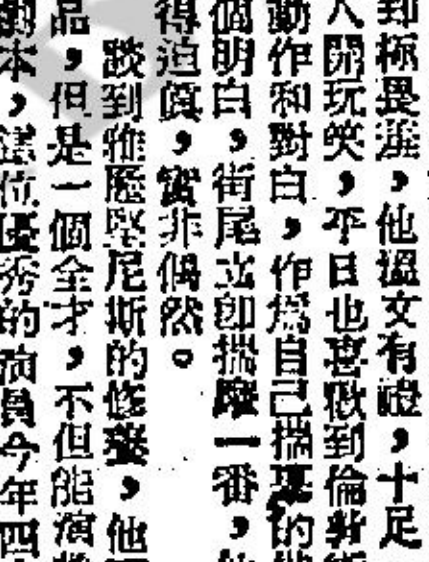 到極畏羞，他溫文有禮，十足
人開玩笑，平日也喜歡到倫敦
動作和對白，作為自己揣摩的
個明白，街尾立即揣摩一番，
得迫真，實非偶然。
談到雅歷堅尼斯的修養，他
品，但是一個全才，不但能演
劇本，這位優秀的演員今年四